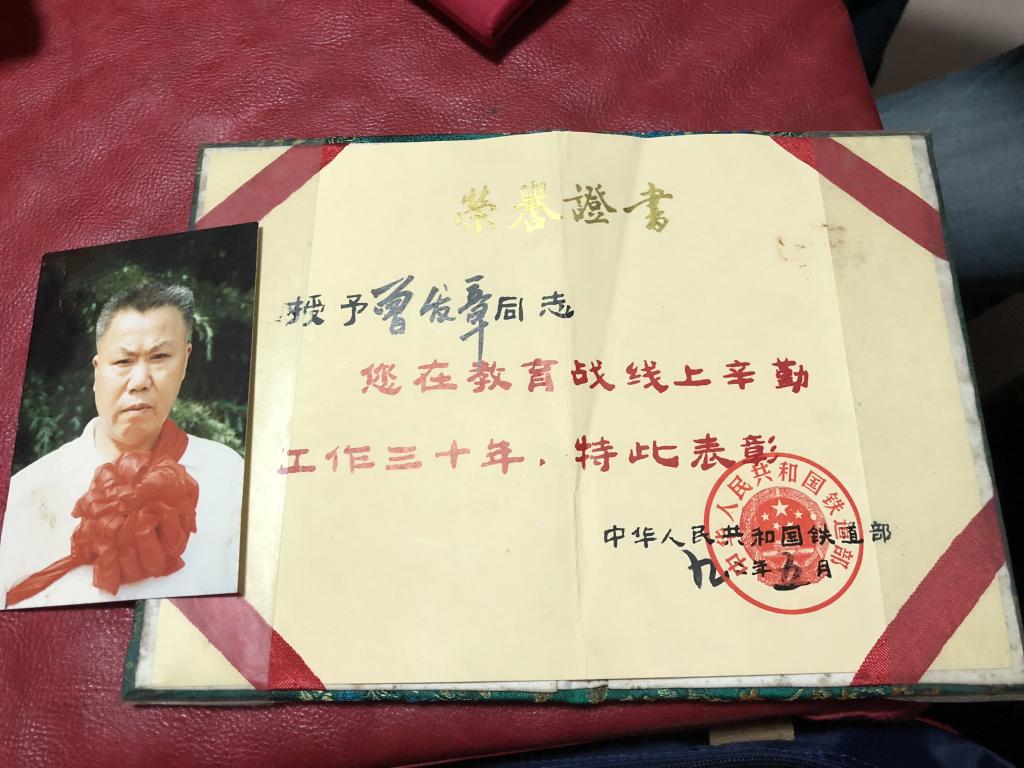 榮譽證書
授予曾发章同志
您在教育战线上辛勤
工作三十年，特此表彰
中华人民共和国铁道部
九二年五月
中华人民共和国铁道部